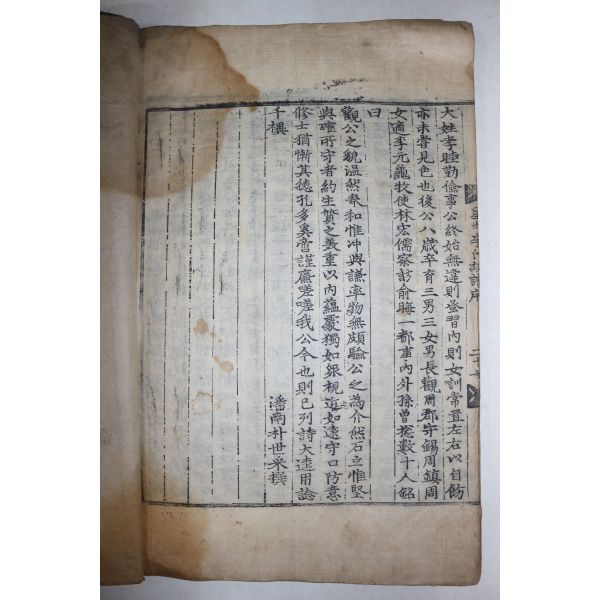 大姓孝睦勤儉事公終始無違則蚤習內則女訓常置左右以自飭
亦未嘗見色也後公八歲卒育三男三女男長觀周郡守錫周鎮周
女適李元龜牧使林宏儒察訪俞晦一都事內外孫曾摠數十人銘
曰
觀公之貌溫然春和惟沖與謙率物無頗驗公之為介然石立惟堅
與確所守者約生質之美重以內蘊處獨如眾視近如遠守口防意
修士猶慚其德孔多奚啻謹廉嗟嗟我公今也則已列詩大逵用諗
千禩
潘南朴世采撰